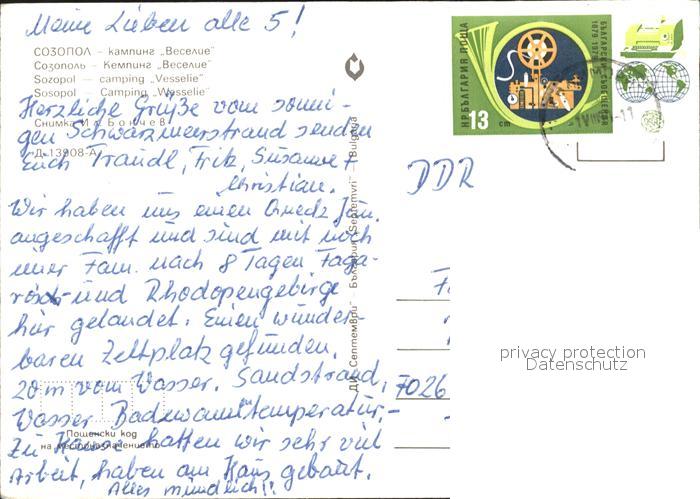 Meine Lieben alle 5!
СОЗОПОЛ – кампинг „Веселие"
Созополь – Кемпинг „Веселие"
Sozopol – camping "Vesselie"
Sosopol – Camping "Wesselie"
Herzliche Grüße vom sonni-
Снимка Бончев
gen Schwarzmeerstrand senden
Д-13908-А
Euch Traudl, Fritz, Susanne +
Christian.
Wir haben uns einen
angeschafft und sind mit noch
einer Fam. nach 8 Tagen Faga-
rasch- und Rhodopengebirge
hier gelandet. Einen wunder-
baren Zeltplatz gefunden,
20 m vom Wasser. Sandstrand,
Wasser Badewannentemperatur.–
Zu Hause hatten wir sehr viel
Пощенски код
на местоназначението
Arbeit, haben am Haus gebaut.
Alles mündlich!!
ДИ „Септември" – България „Septemvri" – Bulgaria
НР БЪЛГАРИЯ ПОЩА
13 cm
БЪЛГАРСКИ СЪОБЩЕНИЯ
1879 1979
DDR
7026
privacy protection
Datenschutz